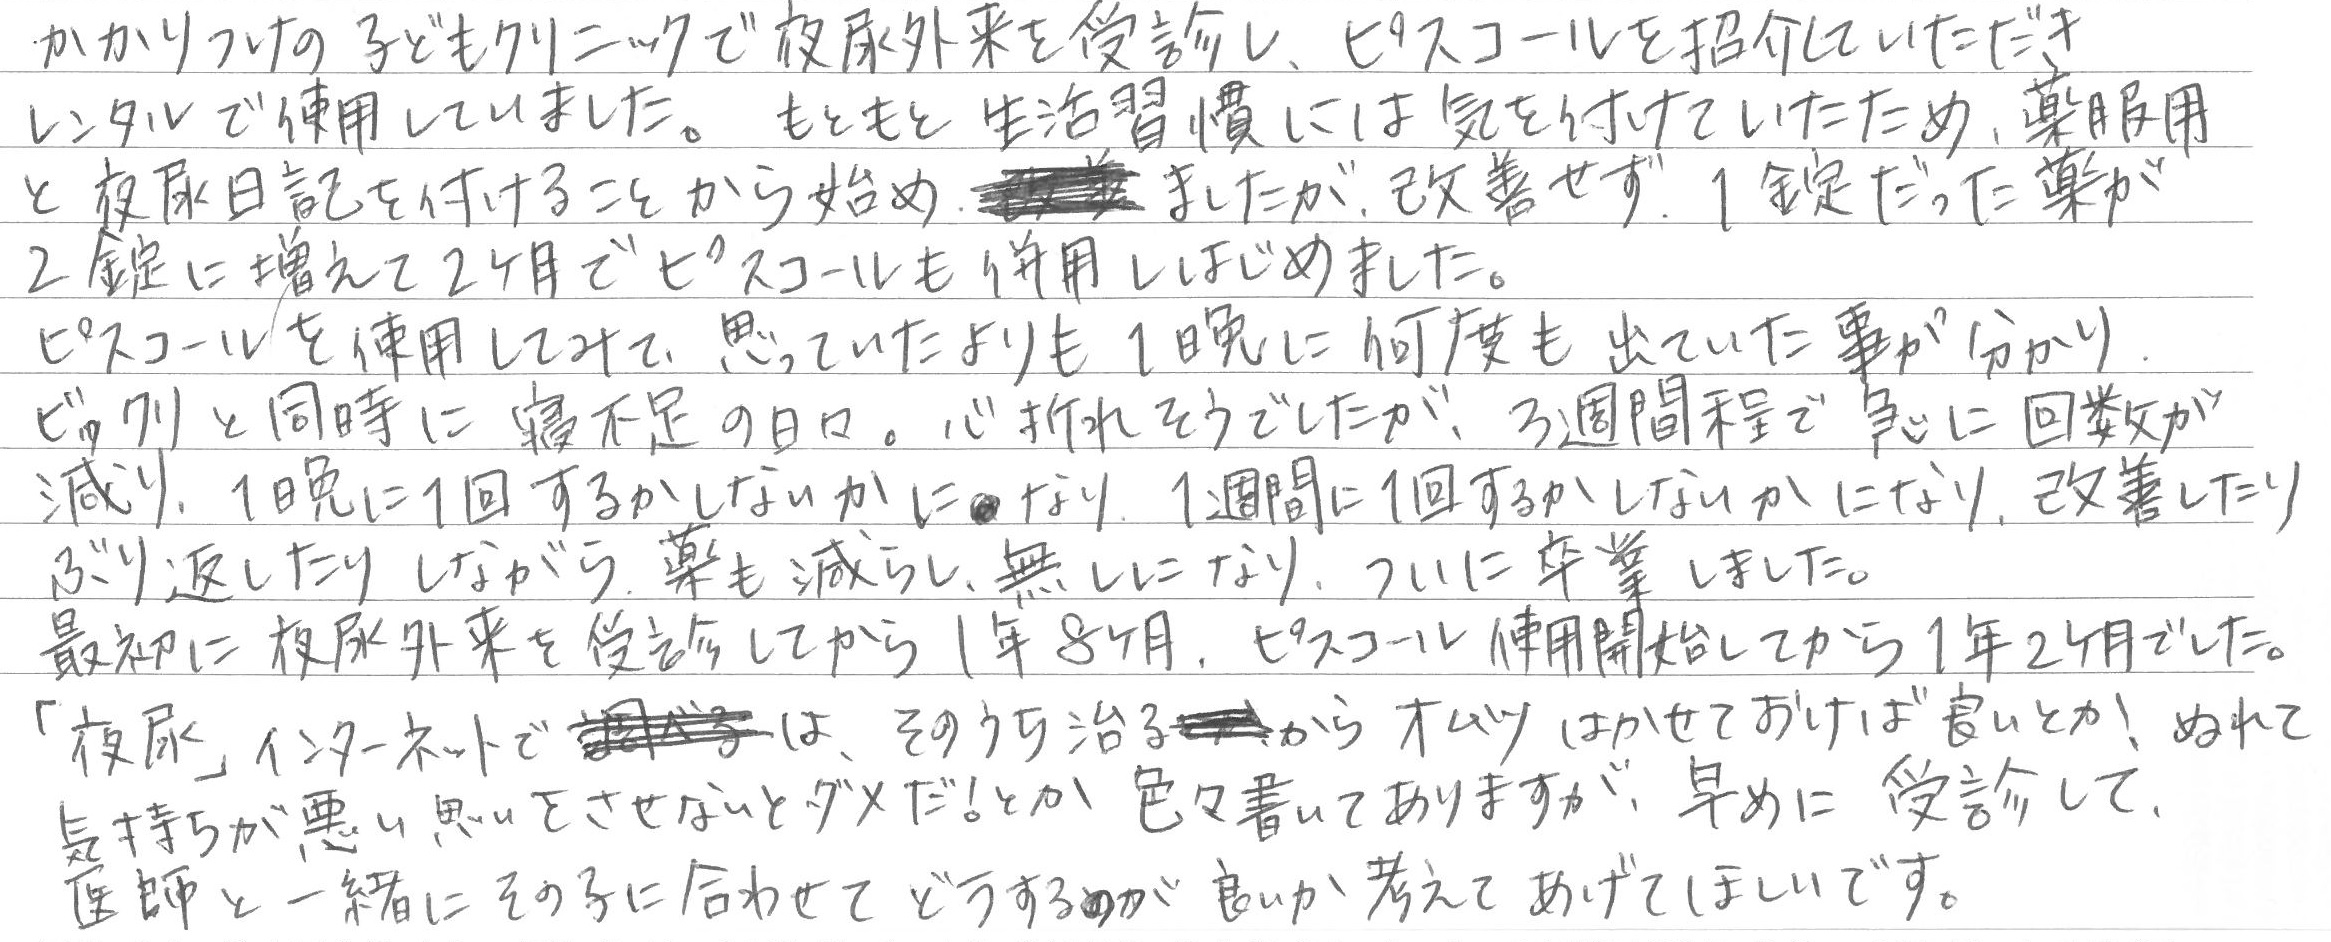 かかりつけの子どもクリニックで夜尿外来を受診し、ピスコールを紹介していただき
レンタルで使用していました。もともと生活習慣には気を付けていたため、薬服用
と夜尿日記を付けることから始め、ましたが、改善せず、1錠だった薬が
2錠に増えて2ヶ月でピスコールも併用しはじめました。
ピスコールを使用してみて、思っていたよりも1晩に何度も出ていた事が分かり、
ビックリと同時に寝不足の日々。心折れそうでしたが、3週間程で急に回数が
減り、1晩に1回するかしないかになり、1週間に1回するかしないかになり、改善したり
ぶり返したりしながら、薬も減らし、無しになり、ついに卒業しました。
最初に夜尿外来を受診してから1年8ヶ月、ピスコール使用開始してから1年2ヶ月でした。
「夜尿」インターネットでは、そのうち治るからオムツはかせておけば良いとか!ぬれて
気持ちが悪い思いをさせないとダメだ!とか色々書いてありますが、早めに受診して、
医師と一緒にその子に合わせてどうするのが良いか考えてあげてほしいです。